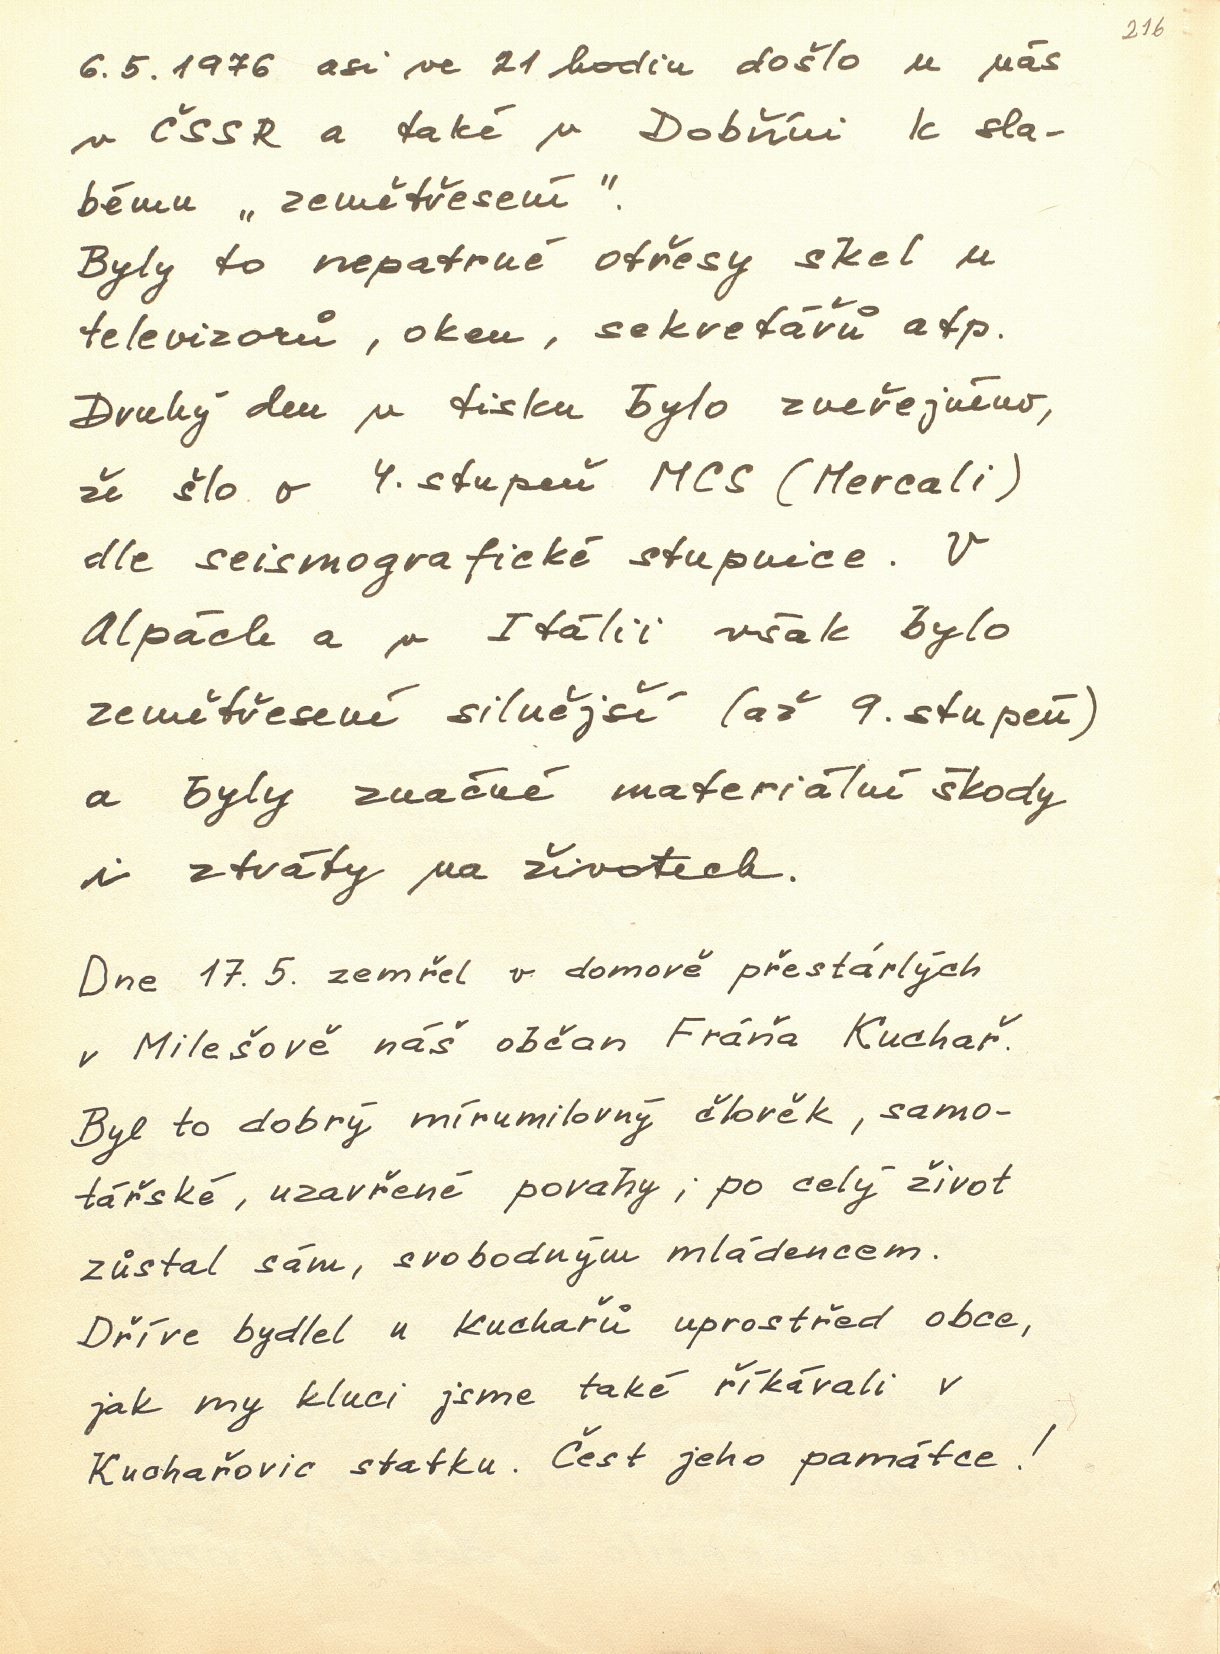 216
6.5.1976 asi ve 21 hodin došlo u nás
v ČSSR a také v Dobříni k sla-
bému „zemětřesení".
Byly to nepatrné otřesy skel u
televizorů, oken, sekretářů atp.
Druhý den v tisku bylo zveřejněno,
že šlo o 4. stupeň MCS (Mercali)
dle seismografické stupnice. V
Alpách a v Itálii však bylo
zemětřesení silnější (až 9. stupeň)
a byly značné materiální škody
i ztráty na životech.
Dne 17. 5. zemřel v domově přestárlých
v Milešově náš občan Fráňa Kuchař.
Byl to dobrý mírumilovný člověk, samo-
tářské, uzavřené povahy; po celý život
zůstal sám, svobodným mládencem.
Dříve bydlel u Kuchařů uprostřed obce,
jak my kluci jsme také říkávali v
Kuchařovic statku. Čest jeho památce!